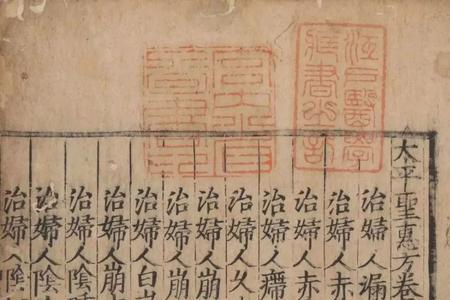 江戶醫學
藏書之記
太平聖惠方卷
治婦人漏
治婦人赤
治婦人赤
治婦人
治婦人久
治婦人崩
治婦人崩
治婦人白
治婦人崩
治婦人陰
治婦人陰
治婦人陰